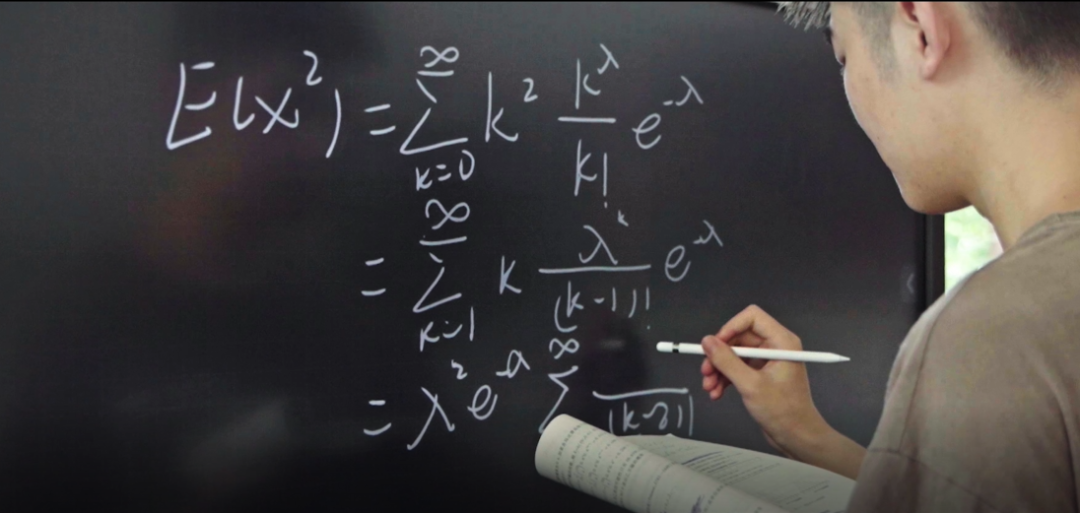 E(x²) = ∑_{k=0}^{∞} k² k^λ/k! e^{-λ}
= ∑_{k=1}^{∞} k λ^k/(k-1)! e^{-λ}
= λ² e^{-a} ∑^{∞} /(k-2)!